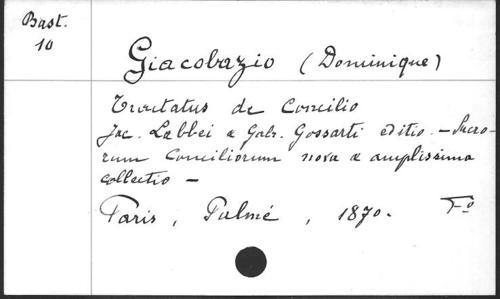 Bast.
10
Giacobazio (Dominique)
Tractatus de Concilio
Jac. Labbei & Gabr. Gossarti editio. — Sacro-
rum Conciliorum nova & amplissima
collectio —
Paris, Palmé, 1870. Fº